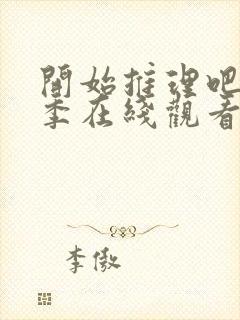 開始推理吧
季在綫觀看
李傲